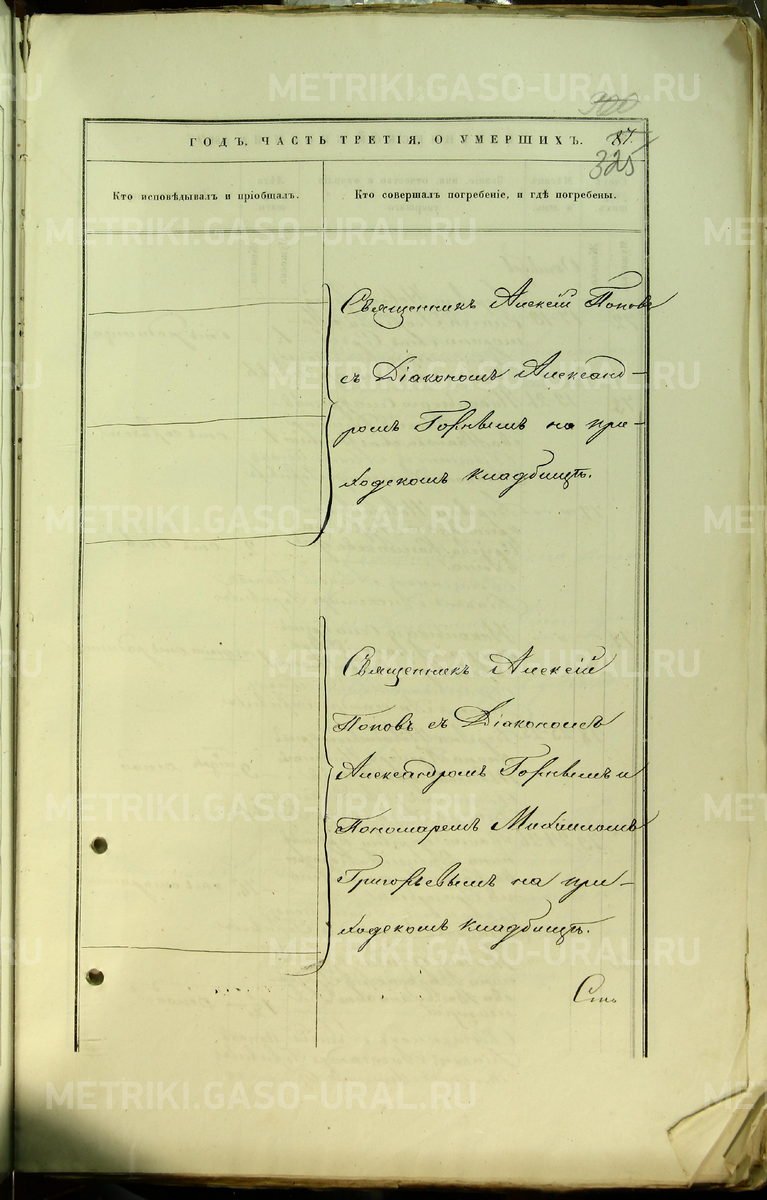 METRIKI.GASO-URAL.RU
900
ГОДЪ. ЧАСТЬ ТРЕТІЯ, О УМЕРШИХЪ. 87.
325
Кто исповѣдывалъ и пріобщалъ.
Кто совершалъ погребеніе, и гдѣ погребены.
Священникъ Алексій Поповъ
съ Діакономъ Александ-
ромъ Горнымъ на при-
ходскомъ кладбищѣ.
Священникъ Алексій
Поповъ съ Діакономъ
Александромъ Горнымъ и
Пономаремъ Михаиломъ
Григорьевымъ на при-
ходскомъ кладбищѣ.